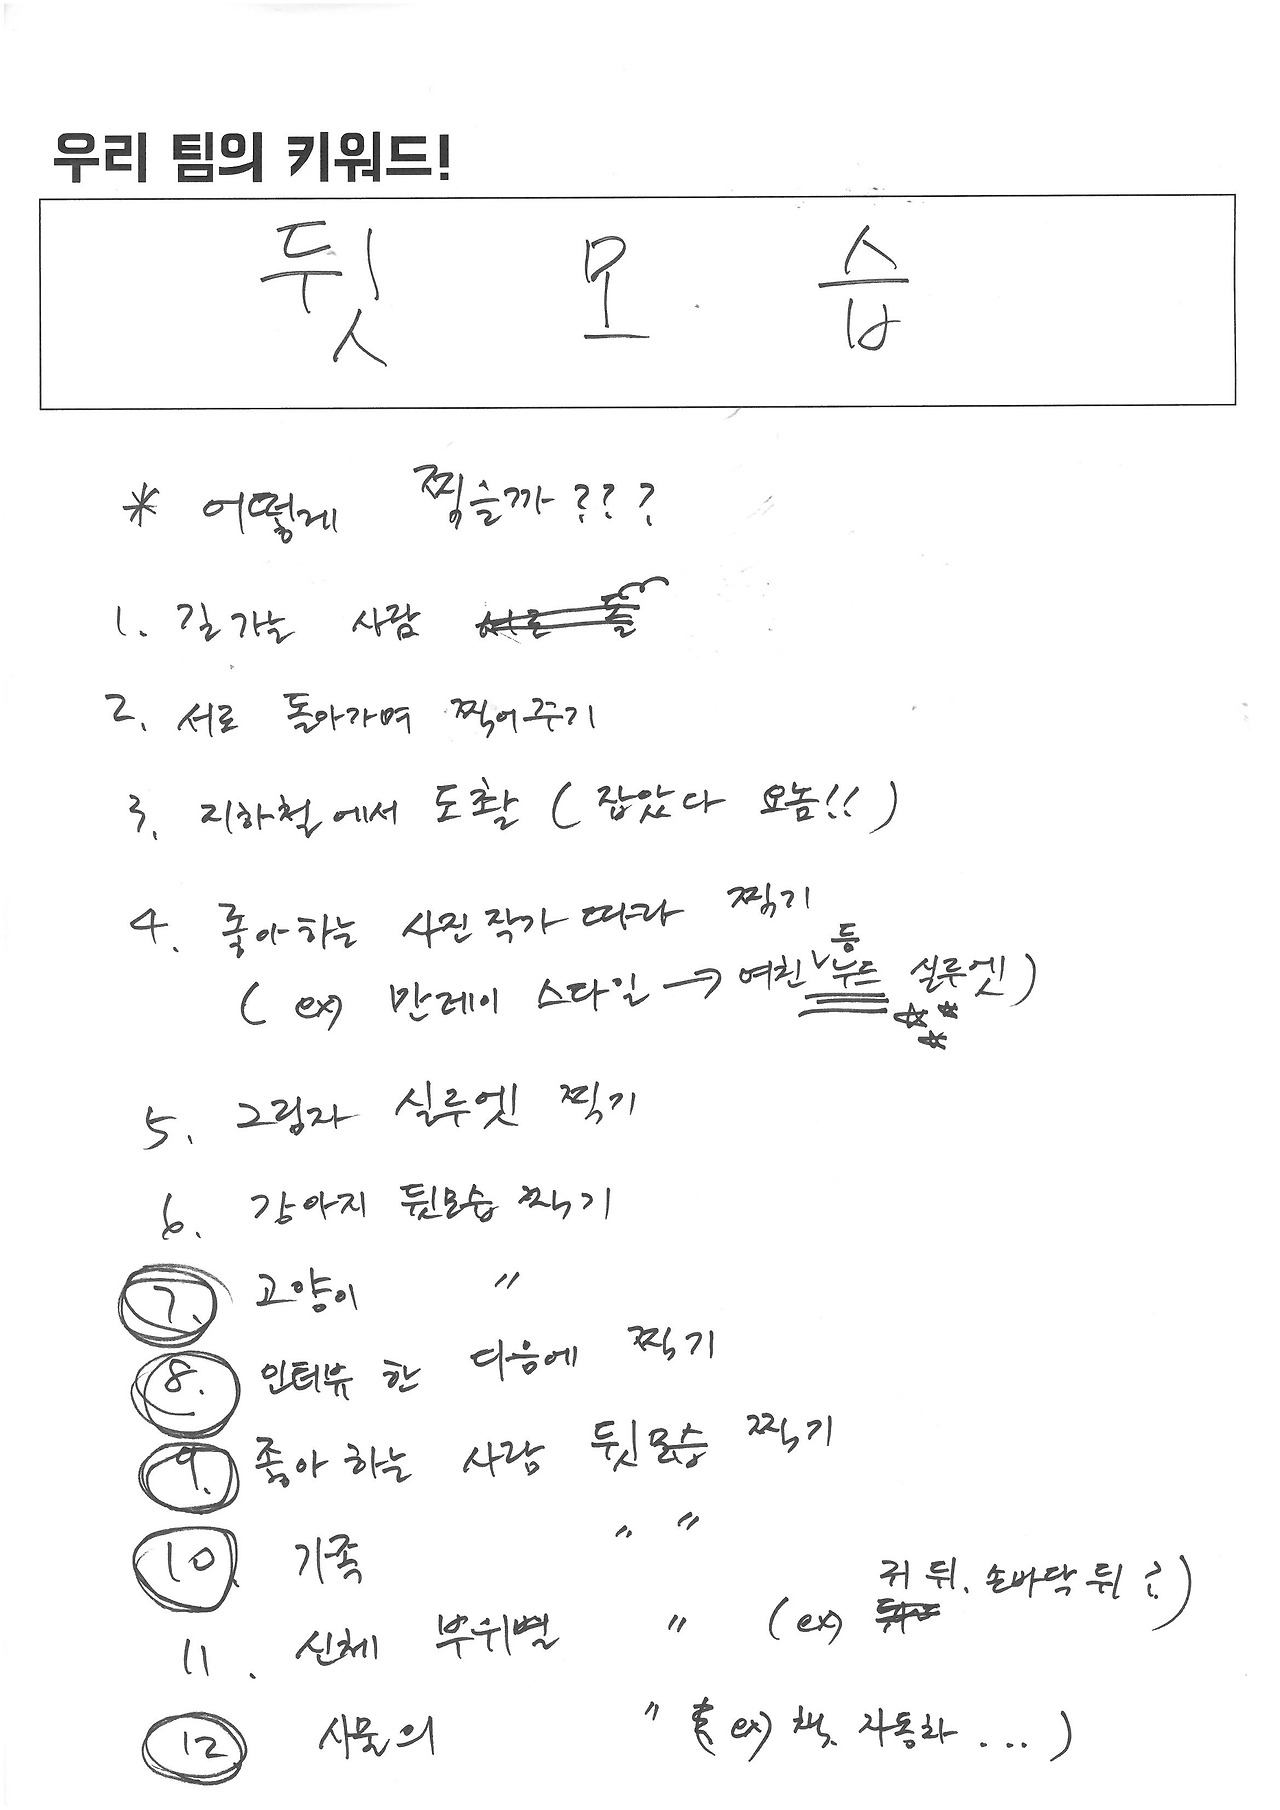 우리 팀의 키워드!
뒷 모 습
* 어떻게 찍을까???
1. 길가는 사람
2. 서로 돌아가며 찍어주기
3. 지하철에서 도촬 (잡았다 요놈!!)
4. 좋아하는 사진작가 따라 찍기
(ex) 만레이 스타일 → 여친 등 누드 실루엣)
5. 그림자 실루엣 찍기
6. 강아지 뒷모습 찍기
7. 고양이 〃
8. 인터뷰 한 다음에 찍기
9. 좋아하는 사람 뒷모습 찍기
10. 가족 〃 〃
11. 신체 부위별 〃 (ex) 귀 뒤, 손바닥 뒤?)
12 사물의 〃 (ex) 책, 자동차 ...)